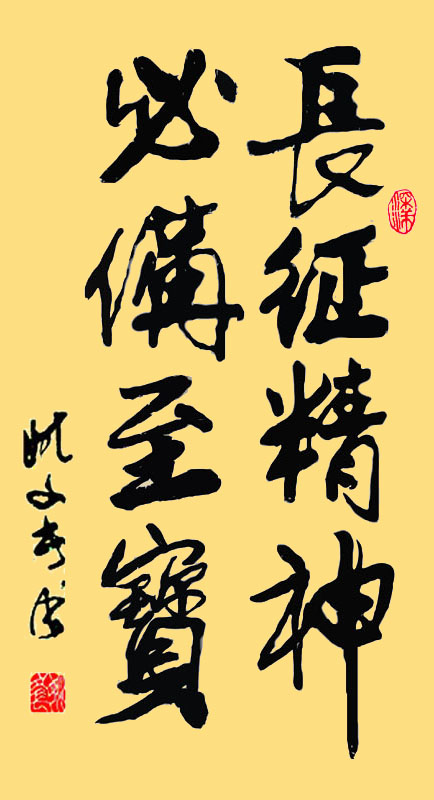 長征精神
必備至寶